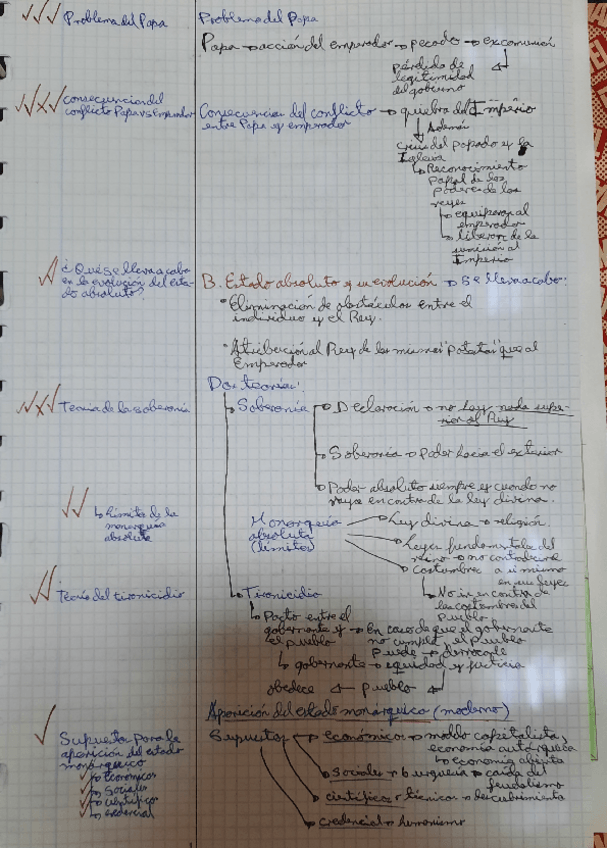 Problema del Papa
Problema del Papa
Papa → acción del emperador → pecado → excomunión
pérdida de
legitimidad
del gobierno
consecuencias del
conflicto Papa vs Emperador
Consecuencias del conflicto → quiebra del Imperio
entre Papa y emperador
Además
crisis del papado y la
Iglesia
Reconocimiento
papal de los
poderes de los
reyes
equiparan al
emperador
liberan de la
sumisión al
Imperio
¿Qué se lleva a cabo
en la evolución del esta-
do absoluto?
B. Estado absoluto y su evolución → Se lleva a cabo:
• Eliminación de obstáculos entre el
individuo y el Rey.
• Atribución al Rey de las mismas "potestas" que al
Emperador
Dos teorías:
Teoría de la soberanía
Soberanía
Declaración → no hay nada supe-
rior al Rey
Soberanía → Poder hacia el exterior
Poder absoluto siempre y cuando no
vaya en contra de la ley divina.
Límites de la
monarquía
absoluta
Monarquía
absoluta
(límites)
Ley divina → religión.
Leyes fundamentales del
reino → no contradecirse
a sí mismo
en sus leyes
Costumbres
No ir en contra de
las costumbres del
pueblo
Teoría del tiranicidio
Tiranicidio
Pacto entre el
gobernante y
el pueblo
En caso de que el gobernante
no cumpla, el pueblo
puede → derrocarle
gobernante → equidad y justicia
obedece ← pueblo
Aparición del estado monárquico (moderno)
Supuestos para la
aparición del estado
monárquico
Económicos
Sociales
científico
credencial
Supuestos
económicos → modelo capitalista,
economía autárquica
economía abierta
sociales → burguesía → caída del
feudalismo
científicos y técnicos → descubrimientos
credencial → humanismo